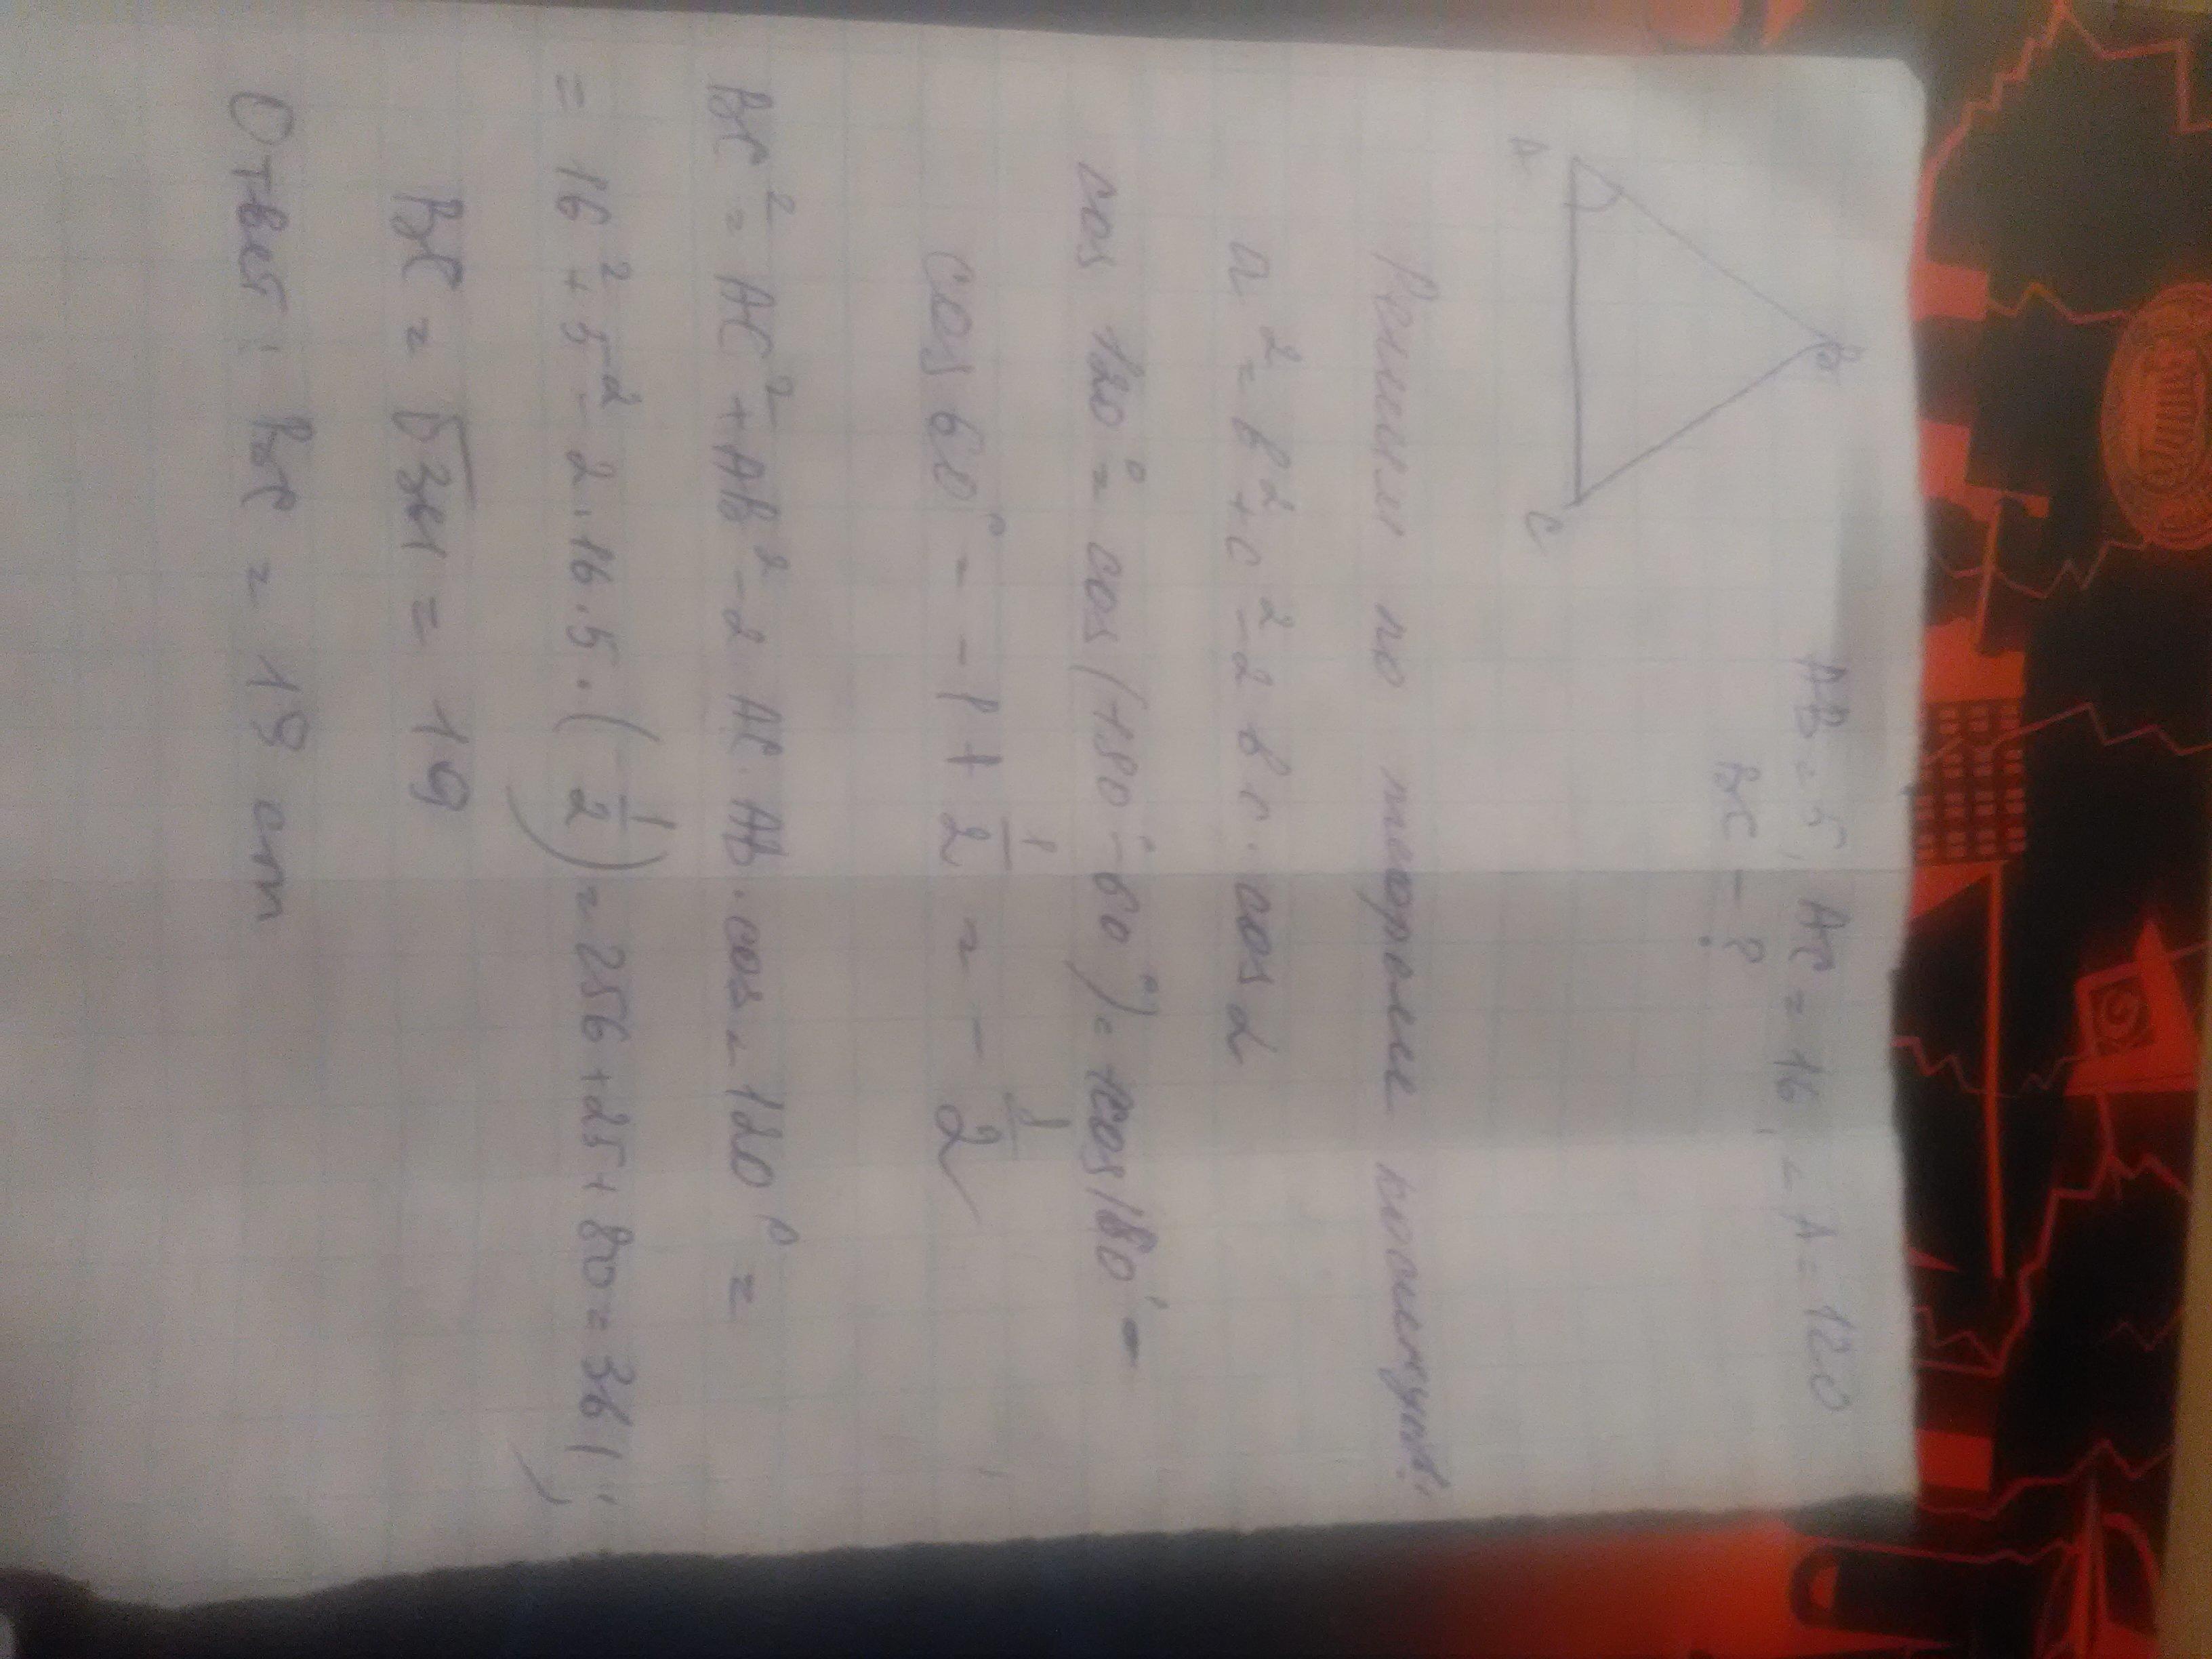 AB = 5, AC = 16, ∠A = 120
BC - ?
B
A
C
Решим по теореме косинусов:
a² = b² + c² - 2bc · cos α
cos 120° = cos(180° - 60°) = cos 180° -
cos 60° = -1 + 1/2 = - 1/2
BC² = AC² + AB² - 2 AC · AB · cos 120° =
= 16² + 5² - 2 · 16 · 5 · (- 1/2) = 256 + 25 + 80 = 361;
BC = √361 = 19
Ответ: BC = 19 cm